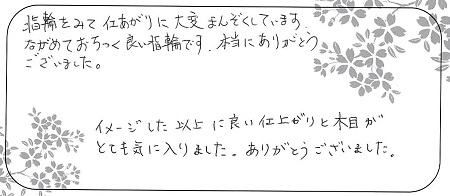 指輪をみて仕あがりに大変まんぞくしています。
ながめておちつく良い指輪です。本当にありがとう
ございました。
イメージした以上に良い仕上がりと木目が
とても気に入りました。ありがとうございました。